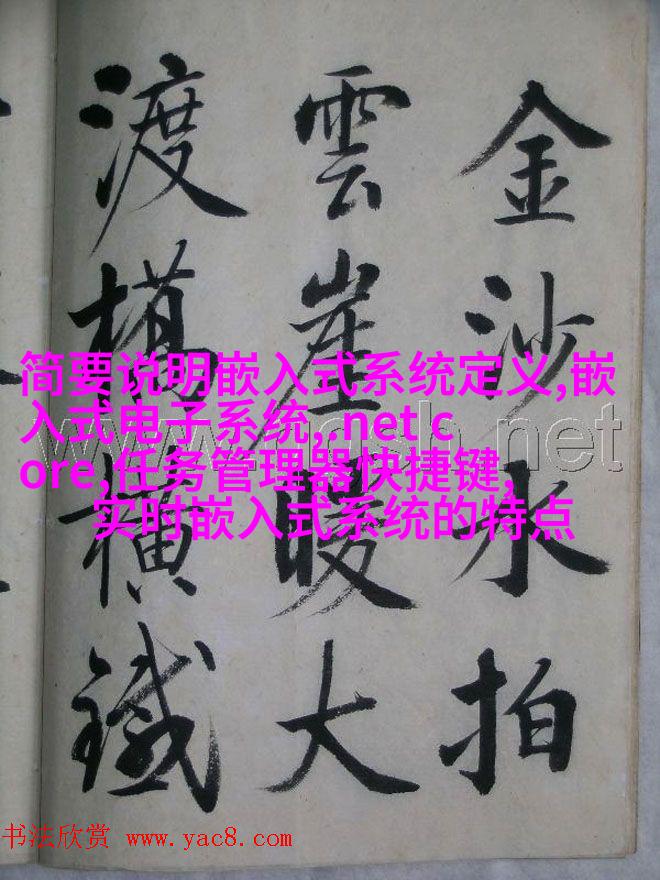 金沙水拍
雲崖暖大
渡橋橫鐵
简要说明嵌入式系统定义,嵌
入式电子系统,.net c
ore,任务管理器快捷键,
实时嵌入式系统的特点
书法欣赏 www.yac8.com